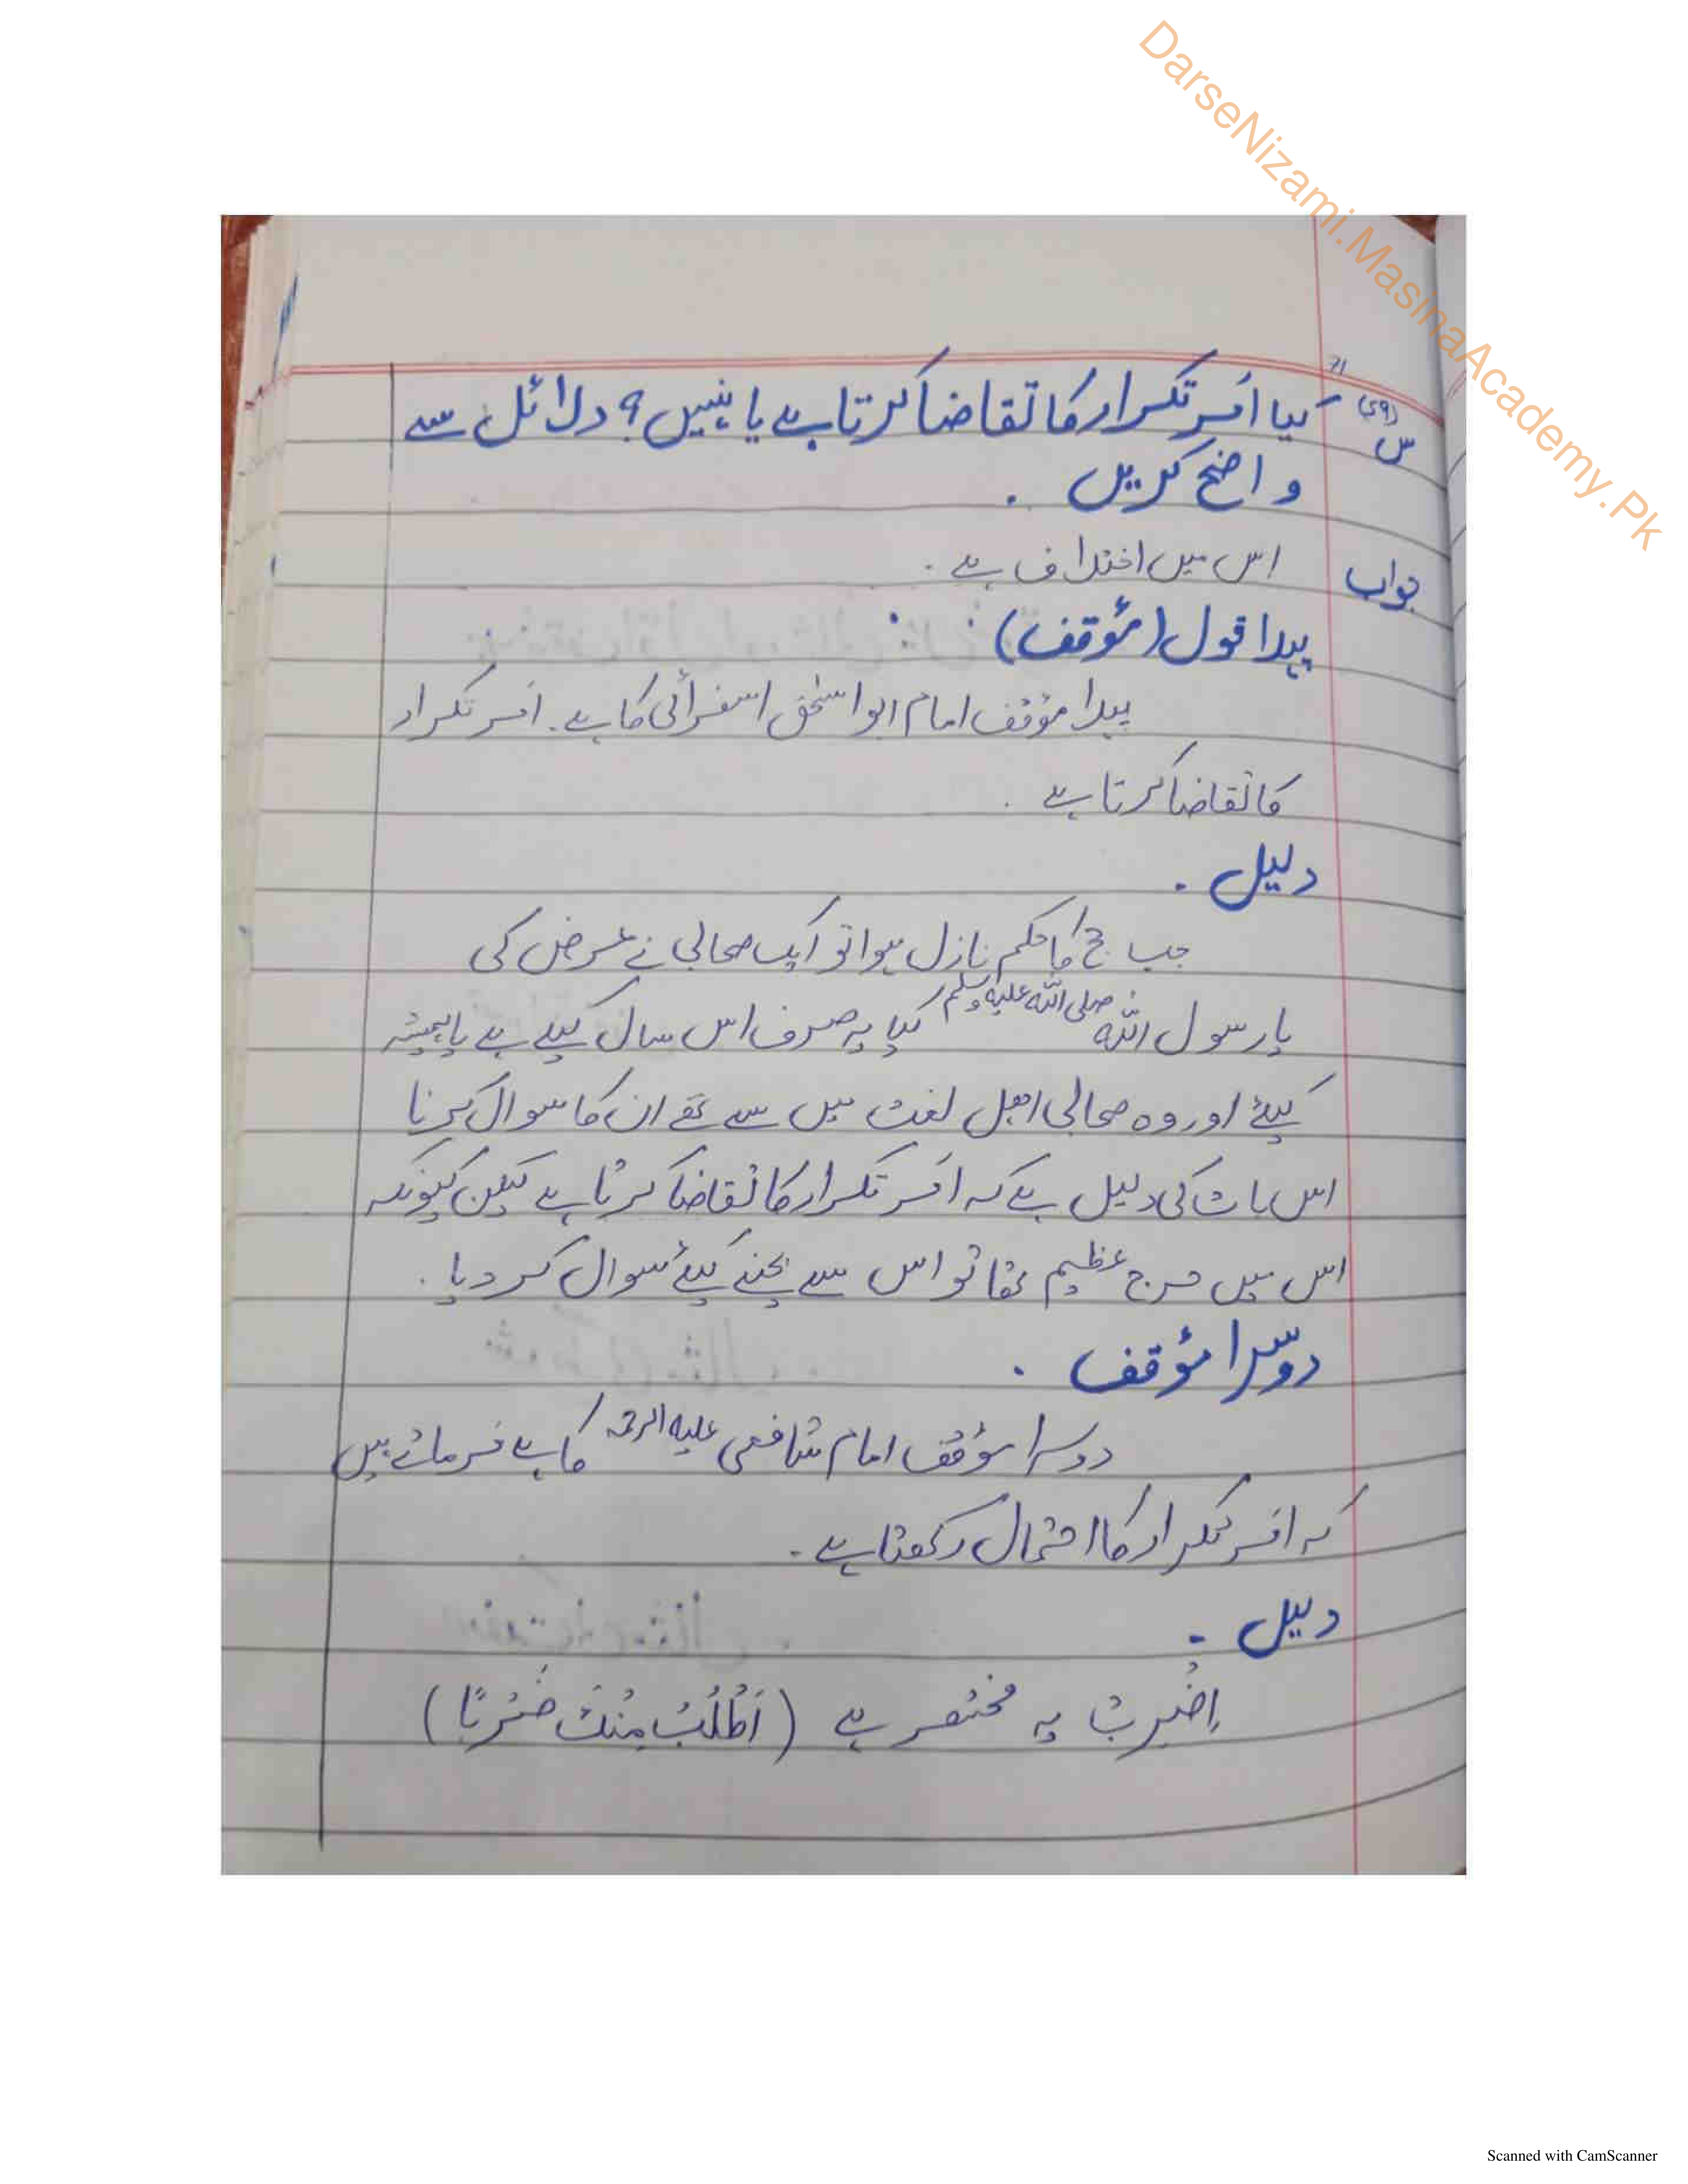 DarseNizami.MasinaAcademy.Pk
71
س (59) کیا امر تکرار کا تقاضا کرتا ہے یا نہیں؟ دلائل سے
واضح کریں۔
جواب اس میں اختلاف ہے۔
پہلا قول (مؤقف)
پہلا مؤقف امام ابو اسحٰق اسفرائی کا ہے۔ امر تکرار
کا تقاضا کرتا ہے۔
دلیل۔
جب حج کا حکم نازل ہوا تو ایک صحابی نے عرض کی
یا رسول اللہ صلی اللہ علیہ وسلم کیا یہ صرف اس سال کیلیے ہے یا ہمیشہ
کیلئے اور وہ صحابی اہل لغت میں سے تھے ان کا سوال کرنا
اس بات کی دلیل ہے کہ امر تکرار کا تقاضا کرتا ہے لیکن کیونکہ
اس میں حرج عظیم تھا تو اس سے بچنے کیلئے سوال کر دیا۔
دوسرا مؤقف۔
دوسرا مؤقف امام شافعی علیہ الرحمہ کا ہے فرماتے ہیں
کہ امر تکرار کا احتمال رکھتا ہے۔
دلیل۔
اِضْرِبْ یہ مختصر ہے (اَطْلُبُ مِنْكَ ضَرْبًا)
Scanned with CamScanner